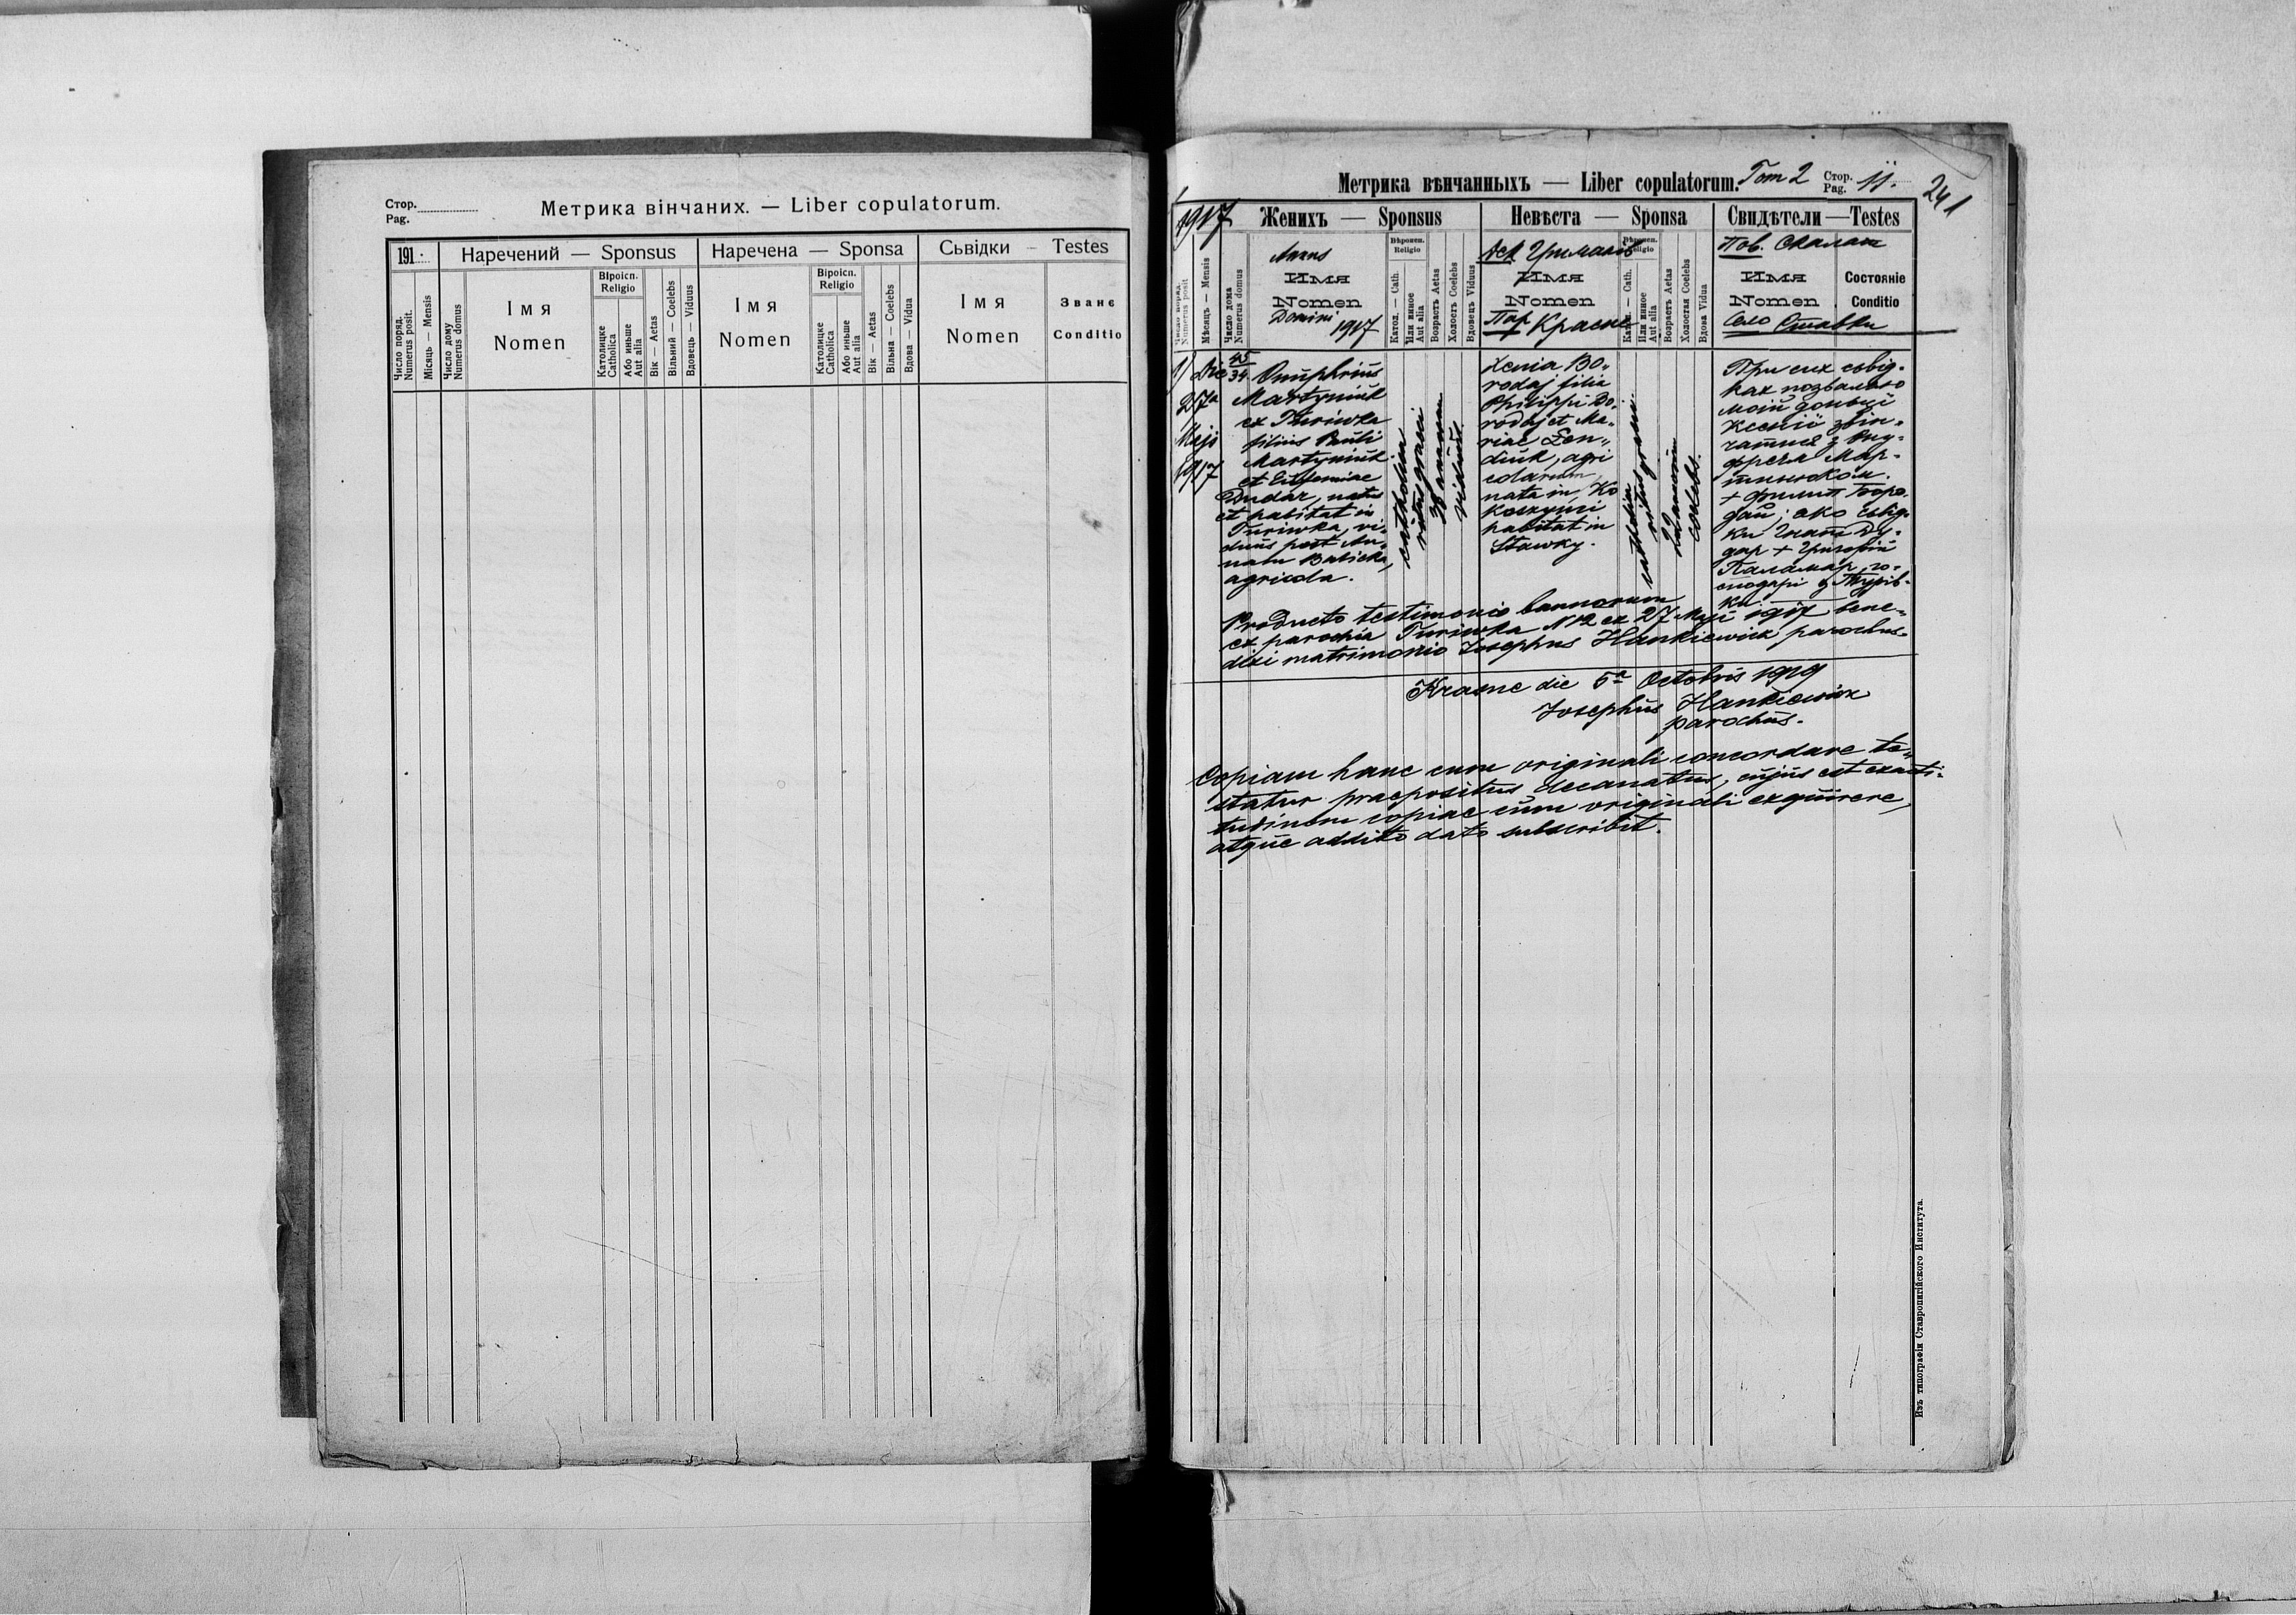 Стор.
Pag.
Метрика вінчаних. — Liber copulatorum.
191
Наречений — Sponsus
Наречена — Sponsa
Сьвідки — Testes
Число поряд.
Numerus posit.
Місяць — Mensis
Число дому
Numerus domus
Імя
Nomen
Віроісп.
Religio
Католицке
Catholica
Або иньше
Aut alia
Вік — Aetas
Вільний — Coelebs
Вдовець — Viduus
Імя
Nomen
Віроісп.
Religio
Католицке
Catholica
Або иньше
Aut alia
Вік — Aetas
Вільна — Coelebs
Вдова — Vidua
Імя
Nomen
Званє
Conditio
Метрика вѣнчанныхъ — Liber copulatorum. Том 2 Стор. Pag. 11.
241
1917
Женихъ — Sponsus
Невѣста — Sponsa
Свидѣтели — Testes
Numerus posit
Мѣсяцъ — Mensis
Число дома
Numerus domus
Annus
Имя
Nomen
Domini 1917
Вѣроисп.
Religio
Катол. — Cath.
Или инное
Aut alia
Возрастъ Aetas
Холостъ Coelebs
Вдовецъ Viduus
Дек Грималів
Имя
Nomen
Пар Красне
Религio
Катол. — Cath.
Или инное
Aut alia
Возрастъ Aetas
Холостая Coelebs
Вдова Vidua
Пов. Скалат
Имя
Nomen
Село Ставки
Состояніе
Conditio
1) Die
27a
Maji
1917
45
34
Onuphrius
Martyniuk
ex Turiwka
filius Pauli
Martyniuk
et Eupheniae
Dudar, natus
et habitat in
Turiwka, vi-
duus post An-
nam Babicka,
agricola.
catholica
ritus graeci
annorum
viduus
Xenia Bo-
rodaj filia
Philippi Bo-
rodaj et Ma-
riae Sen-
diuk, agri
colarum,
nata in Ko
koszynci
habitat in
Stawky.
catholica
ritus graeci
annorum
coelebs.
При сих сьвід-
ках позваляю
моїй доньці
Ксенії звін-
чатися з Ону-
фриєм Мар-
тинюком.
+ Филип Боро-
дай; яко сьвід-
ки Гнат Ду-
дар + Григорий
Паламар, го-
сподарі з Турів-
ки
Producto testimonio bannorum
ex parochia Turiwka N 12 ex 27 Maji 1917 bene-
dixi matrimonio Josephus Hankiewicz parochus.
Krasne die 5a Octobris 1919
Josephus Hankiewicz
parochus.
Copiam hanc cum originali concordare te-
statur praepositus decanatus, cujus est exacti-
tudinem copiae cum originali exquirere,
atque addito dato subscribit.
Изъ типографіи Ставропигійского Института.